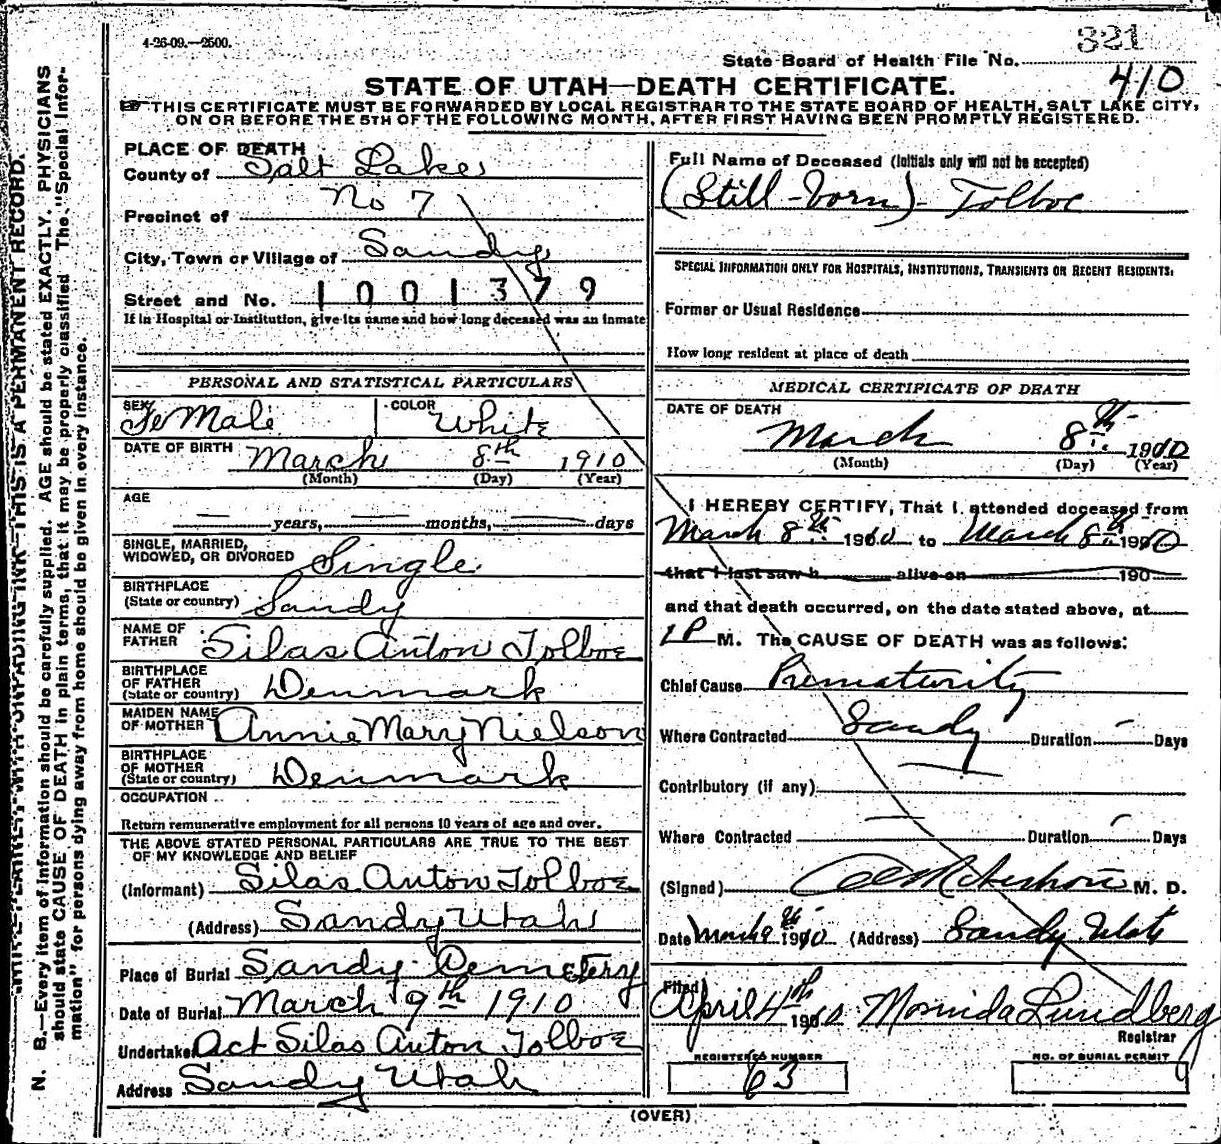 4-26-09.—2500.
321
State Board of Health File No.
410
STATE OF UTAH—DEATH CERTIFICATE.
THIS CERTIFICATE MUST BE FORWARDED BY LOCAL REGISTRAR TO THE STATE BOARD OF HEALTH, SALT LAKE CITY,
ON OR BEFORE THE 5TH OF THE FOLLOWING MONTH, AFTER FIRST HAVING BEEN PROMPTLY REGISTERED.
N. B.—Every item of information should be carefully supplied. AGE should be stated EXACTLY. PHYSICIANS
should state CAUSE OF DEATH in plain terms, that it may be properly classified. The "Special Infor-
mation" for persons dying away from home should be given in every instance.
THIS IS A PERMANENT RECORD.
PLACE OF DEATH
County of Salt Lake
Precinct of No 7
City, Town or Village of Sandy
Street and No. 1001379
If in Hospital or Institution, give its name and how long deceased was an inmate
PERSONAL AND STATISTICAL PARTICULARS
SEX FeMale COLOR White
DATE OF BIRTH March 8th 1910
(Month) (Day) (Year)
AGE
— years, — months, — days
SINGLE, MARRIED,
WIDOWED, OR DIVORCED Single
BIRTHPLACE
(State or country) Sandy
NAME OF
FATHER Silas Anton Tolboe
BIRTHPLACE
OF FATHER
(State or country) Denmark
MAIDEN NAME
OF MOTHER Annie Mary Nielson
BIRTHPLACE
OF MOTHER
(State or country) Denmark
OCCUPATION
Return remunerative employment for all persons 10 years of age and over.
THE ABOVE STATED PERSONAL PARTICULARS ARE TRUE TO THE BEST
OF MY KNOWLEDGE AND BELIEF
(Informant) Silas Anton Tolboe
(Address) Sandy Utah
Place of Burial Sandy Cemetery
Date of Burial March 9th 1910
Undertaker Act Silas Anton Tolboe
Address Sandy Utah
Full Name of Deceased (Initials only will not be accepted)
(Still-born) Tolboe
SPECIAL INFORMATION ONLY FOR HOSPITALS, INSTITUTIONS, TRANSIENTS OR RECENT RESIDENTS:
Former or Usual Residence
How long resident at place of death
MEDICAL CERTIFICATE OF DEATH
DATE OF DEATH
March 8th 1910
(Month) (Day) (Year)
I HEREBY CERTIFY, That I attended deceased from
March 8th 1910 to March 8th 1910
that I last saw h alive on 190
and that death occurred, on the date stated above, at
1 P M. The CAUSE OF DEATH was as follows:
Chief Cause Prematurity
Where Contracted Sandy Duration — Days
Contributory (if any)
Where Contracted — Duration — Days
(Signed) M. D.
Date March 9th 1910 (Address) Sandy Utah
Filed
April 4th 1910 Morinda Lundberg
Registrar
REGISTERED NUMBER
63
NO. OF BURIAL PERMIT
(OVER)